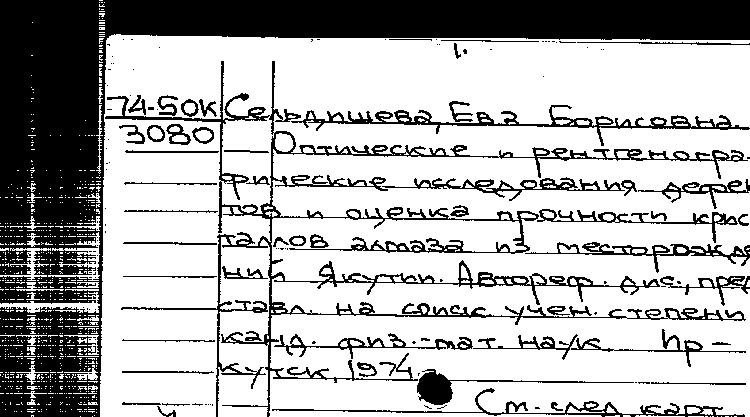 1.
74-50к Сельдишева, Ева Борисовна.
3080 Оптические и рентгеногра-
фические исследования дефек
тов и оценка прочности крис
таллов алмаза из месторожде
ний Якутии. Автореф. дис., пред
ставл. на соиск. учен. степени
канд. физ.-мат. наук. Ир-
кутск, 1974.
См. след. карт